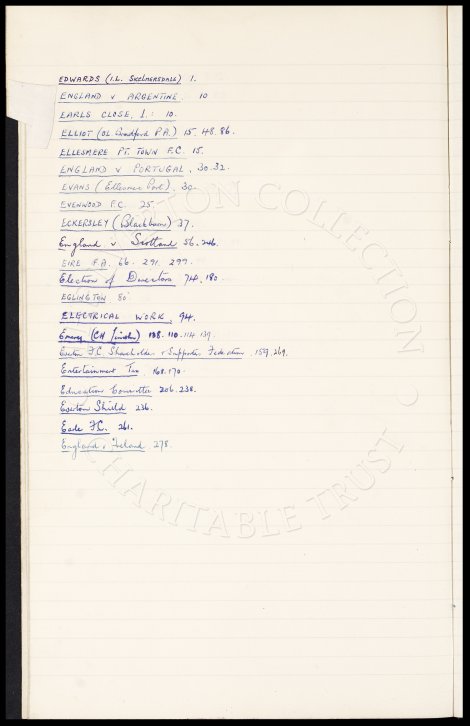 EDWARDS (I.L. SKELMERSDALE) 1.
ENGLAND V ARGENTINE. 10
EARLS CLOSE, 1. : 10.
ELLIOT (OL Bradford P.A.) 15. 48. 86.
ELLESMERE PT. TOWN F.C. 15.
ENGLAND V PORTUGAL. 30. 32.
EVANS (Ellesmere Port). 30.
EVENWOOD F.C. 25.
ECKERSLEY (Blackburn) 37.
England v Scotland 56. 246.
EIRE F.A. 66. 291. 299.
Election of Directors 74. 180.
EGLINGTON 80
ELECTRICAL WORK. 94.
Emery (CH Lincoln) 108. 110. 114. 139.
Everton F.C. Shareholders & Supporters Federation. 159. 269.
Entertainment Tax 168. 170.
Education Committee 206. 238.
Everton Shield 236.
Earle F.C. 261.
England v Ireland 278.
EVERTON COLLECTION CHARITABLE TRUST ©